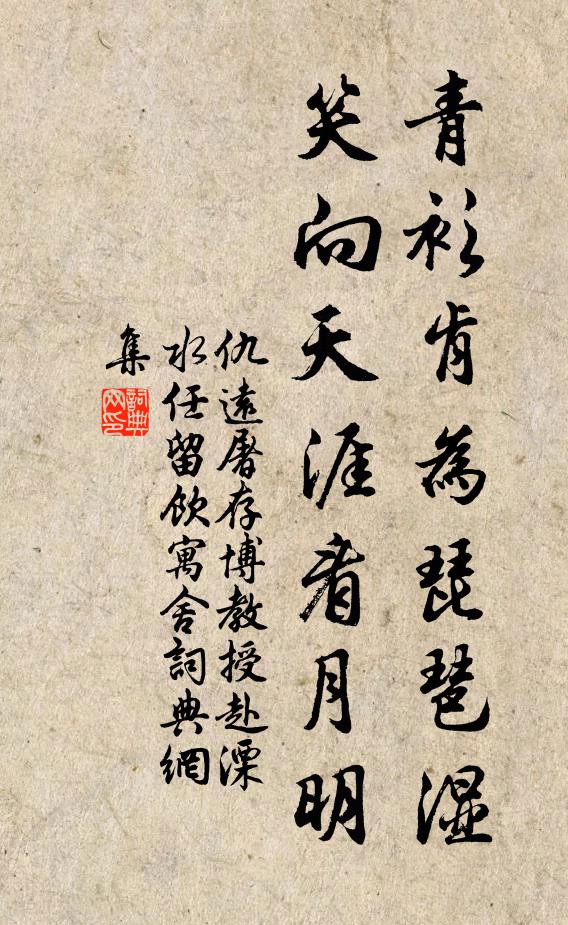 青衫肯為琵琶濕
笑向天涯看月明
仇遠屠存博教授赴溧
水任留飲寓舍詞典網
集
詞典
網印